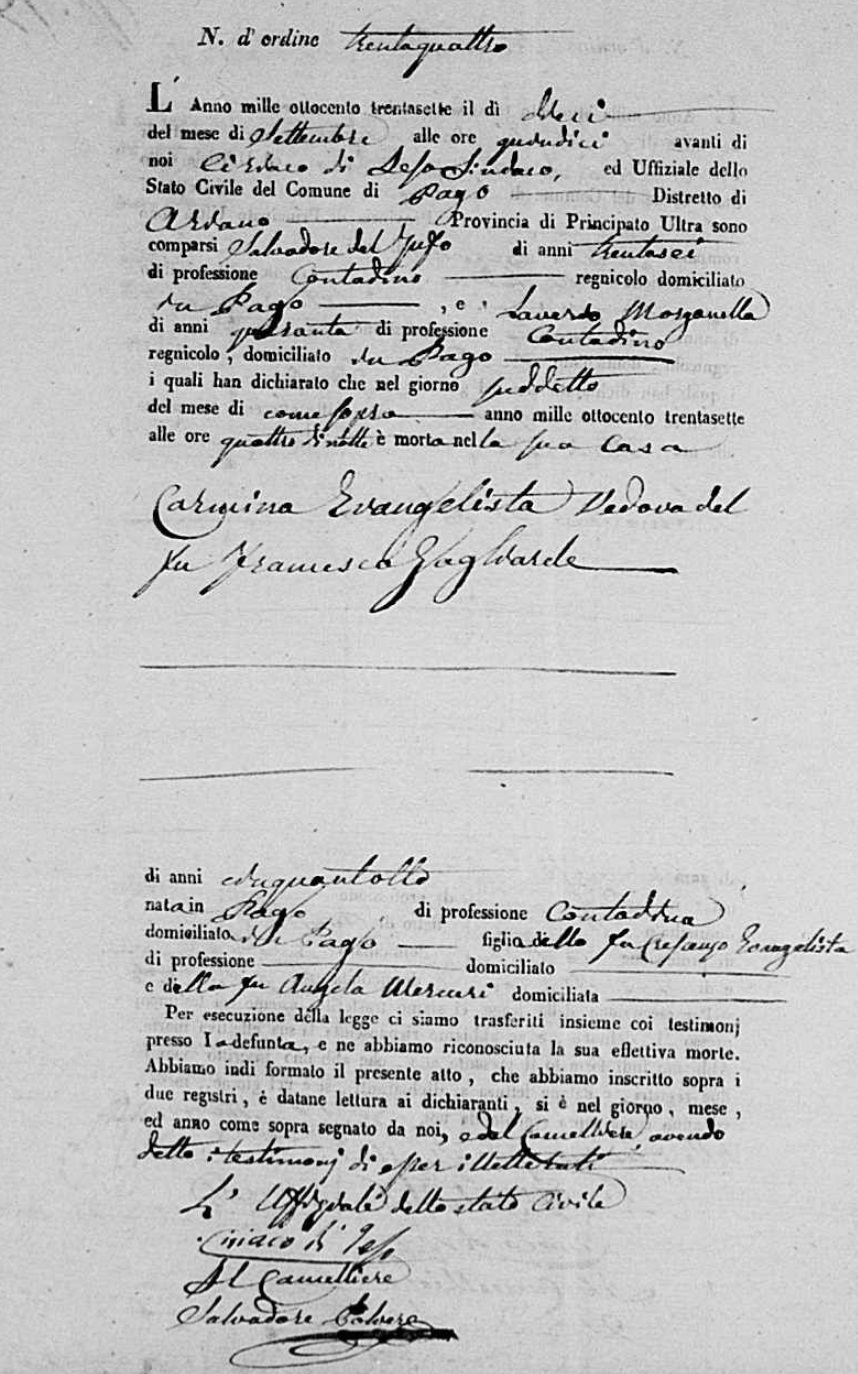 N. d'ordine trentaquattro
L' Anno mille ottocento trentasette il dì dieci
del mese di Settembre alle ore quindici avanti di
noi Ciriaco di Peso Sindaco, ed Uffiziale dello
Stato Civile del Comune di Pago Distretto di
Ariano Provincia di Principato Ultra sono
comparsi Salvadore del Jufo di anni trentasei
di professione Contadino regnicolo domiciliato
in Pago , e Saverio Morganella
di anni quaranta di professione Contadino
regnicolo, domiciliato in Pago
i quali han dichiarato che nel giorno suddetto
del mese di come sopra anno mille ottocento trentasette
alle ore quattro di notte è morta nella sua casa
Carmina Evangelista Vedova del
fu Francesco Gagliarde
di anni cinquantotto
nata in Pago di professione Contadina
domiciliata in Pago figlia dello fu Evangelista
di professione domiciliato
e della fu Angela Mercuri domiciliata
Per esecuzione della legge ci siamo trasferiti insieme coi testimonj
presso la defunta, e ne abbiamo riconosciuta la sua effettiva morte.
Abbiamo indi formato il presente atto, che abbiamo inscritto sopra i
due registri, è datane lettura ai dichiaranti, si è nel giorno, mese,
ed anno come sopra segnato da noi, e dal Cancelliere, avendo
detto i testimonj di esser illetterati
L' Uffiziale dello stato Civile
Ciriaco di Peso
Il Cancelliere
Salvadore Polvere